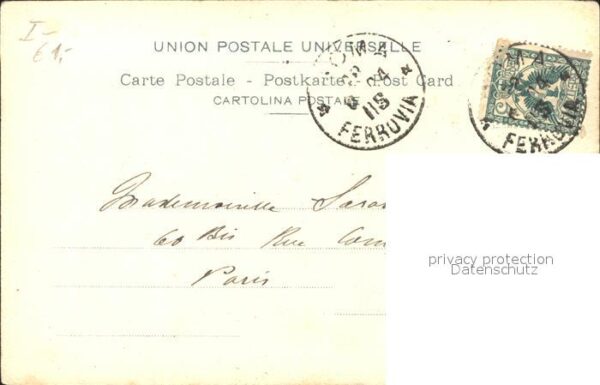 I-
61,-
UNION POSTALE UNIVERSELLE
Carte Postale - Postkarte - Post Card
CARTOLINA POSTALE
ROMA
04
11S
FERROVIA
ROMA
FERROVIA
Mademoiselle
60 Bis Rue
Paris
privacy protection
Datenschutz